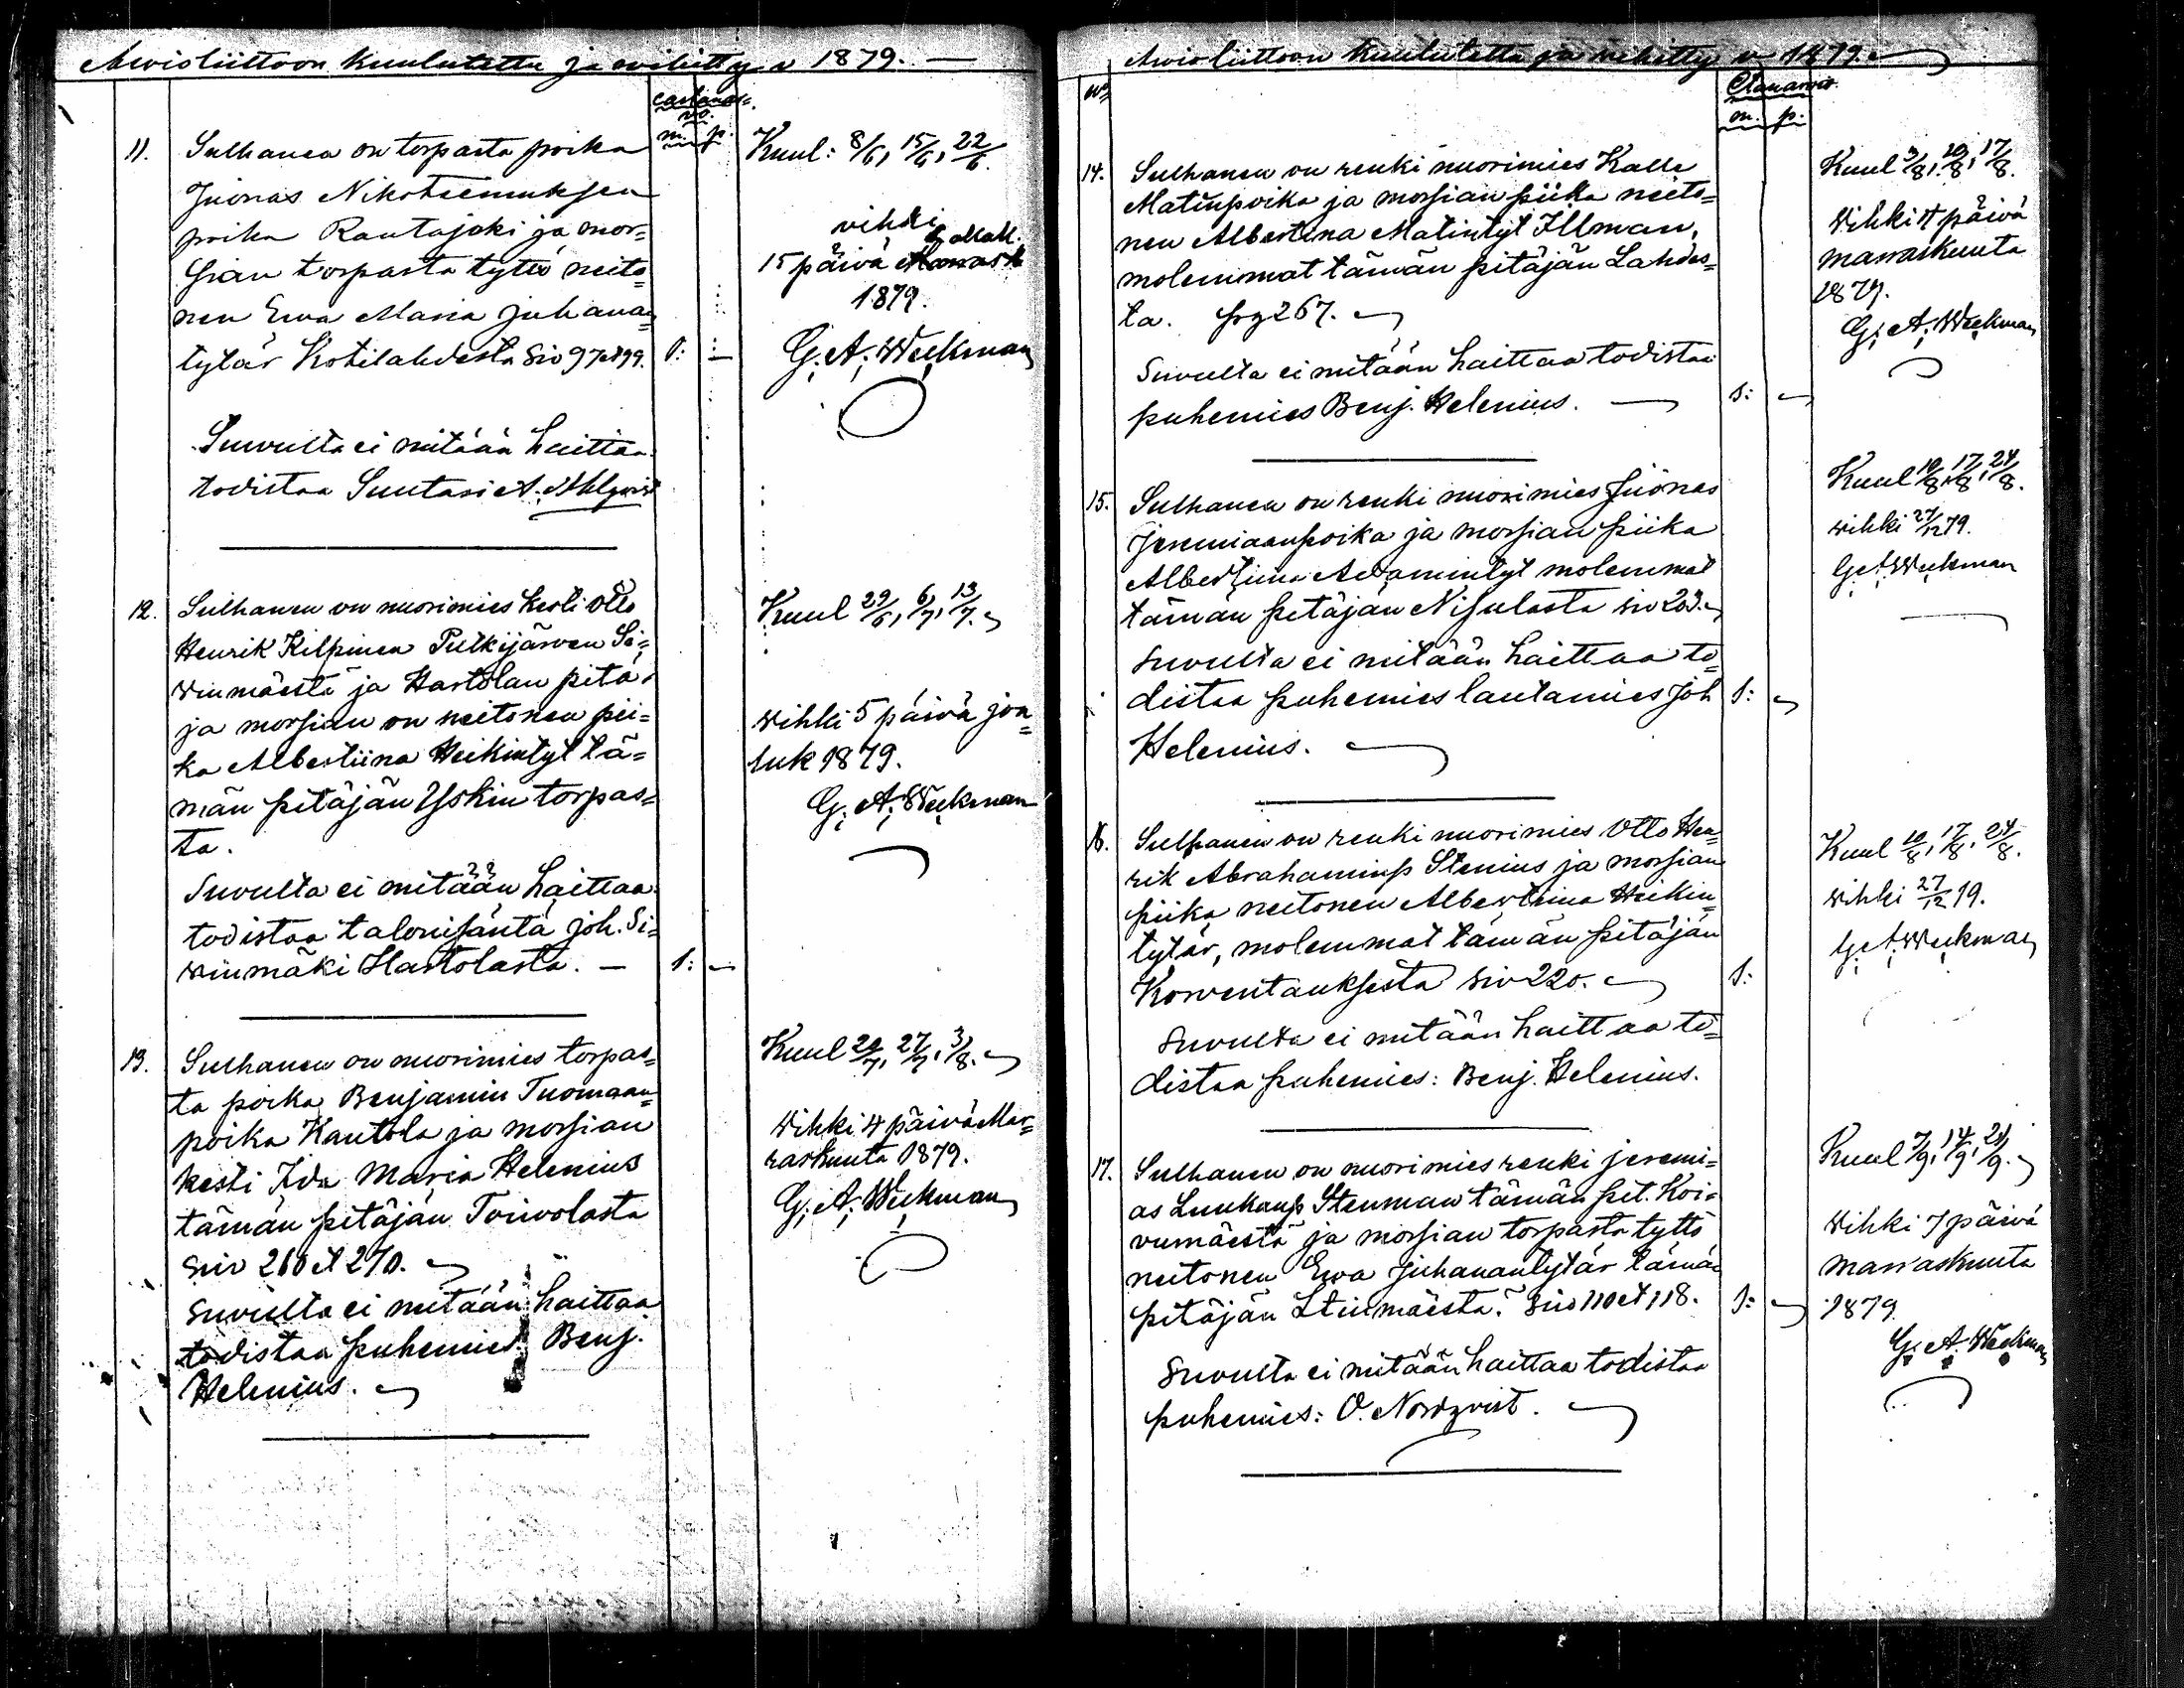 Awioliittoon kuulutettu ja wihitty v 1879.
m. p.
11. Sulhanen on torpasta poika
Juonas Nikoteemuksen
poika Rautajoki ja mor=
sian torpasta tyttö neito=
nen Ewa Maria Juhanan=
tytär Kotilahdesta Siv 97 et 99. 1: —
Suvulta ei mitään haittaa
todistaa Suutari A. Ahlqvist
Kuul: 8/6, 15/6, 22/6.
vihki
15 päivä
1879.
G. A. Weckman
12. Sulhanen on nuorimies kesti Otto
Henrik Kilpinen Pulkijärven Si=
winmäestä ja Hartolan pitä.
ja morsian on neitonen pii=
ka Albertiina Heikintyt tä=
män pitäjän Yskin torpas=
ta.
Suvulta ei mitään haittaa
todistaa talonisäntä Joh. Si=
winmäki Hartolasta. — 1: —
Kuul 29/6, 6/7, 13/7.
wihki 5 päivä jou=
luk 1879.
G. A. Weckman
13. Sulhanen on nuorimies torpas=
ta poika Benjamin Tuomaan=
poika Kautola ja morsian
kesti Ida Maria Helenius
tämän pitäjän Toiwolasta
siv 260 et 270.
Suvulta ei mitään haittaa
todistaa puhemies: Benj.
Helenius.
Kuul 20/7, 27/7, 3/8.
Wihki 4 päivä Mar=
raskuuta 1879.
G. A. Weckman
Awioliittoon kuulutettu ja wihitty v 1879.
No
m. p.
14. Sulhanen on renki nuorimies Kalle
Matinpoika ja morsian piika neito=
nen Albertina Matintyt Illman,
molemmat tämän pitäjän Lahdes=
ta. pag 267.
Suvulta ei mitään haittaa todistaa
puhemies Benj. Helenius. 1: —
Kuul 3/8, 10/8, 17/8.
Wihki 4 päivä
marraskuuta
1879.
G. A. Weckman
15. Sulhanen on renki nuorimies Juonas
Jeremiaanpoika ja morsian piika
Albertiina Adamintyt molemmat
tämän pitäjän Nisulasta siv 203.
Suvulta ei mitään haittaa to=
distaa puhemies lautamies Joh 1: —
Helenius.
Kuul 10/8, 17/8, 24/8.
wihki 27/12 79.
G. A. Weckman
16. Sulhanen on renki nuorimies Otto Hen=
rik Abrahaminp Stenius ja morsian
piika neitonen Albertiina Heikin=
tytär, molemmat tämän pitäjän
Korventauksesta siv 220. 1:
Suvulta ei mitään haittaa to=
distaa puhemies: Benj. Helenius.
Kuul 10/8, 17/8, 24/8.
wihki 27/12 79.
G. A. Weckman
17. Sulhanen on nuorimies renki Jeremi=
as Luukanp Stenman tämän pit. Koi=
vumäestä ja morsian torpasta tyttö
neitonen Ewa Juhanantytär tämän
pitäjän Ltinmäestä. Siv 110 et 118. 1: —
Suvulta ei mitään haittaa todistaa
puhemies: O. Nordqvist.
Kuul 7/9, 14/9, 21/9.
Wihki 7 päivä
marraskuuta
1879
G. A. Weckman